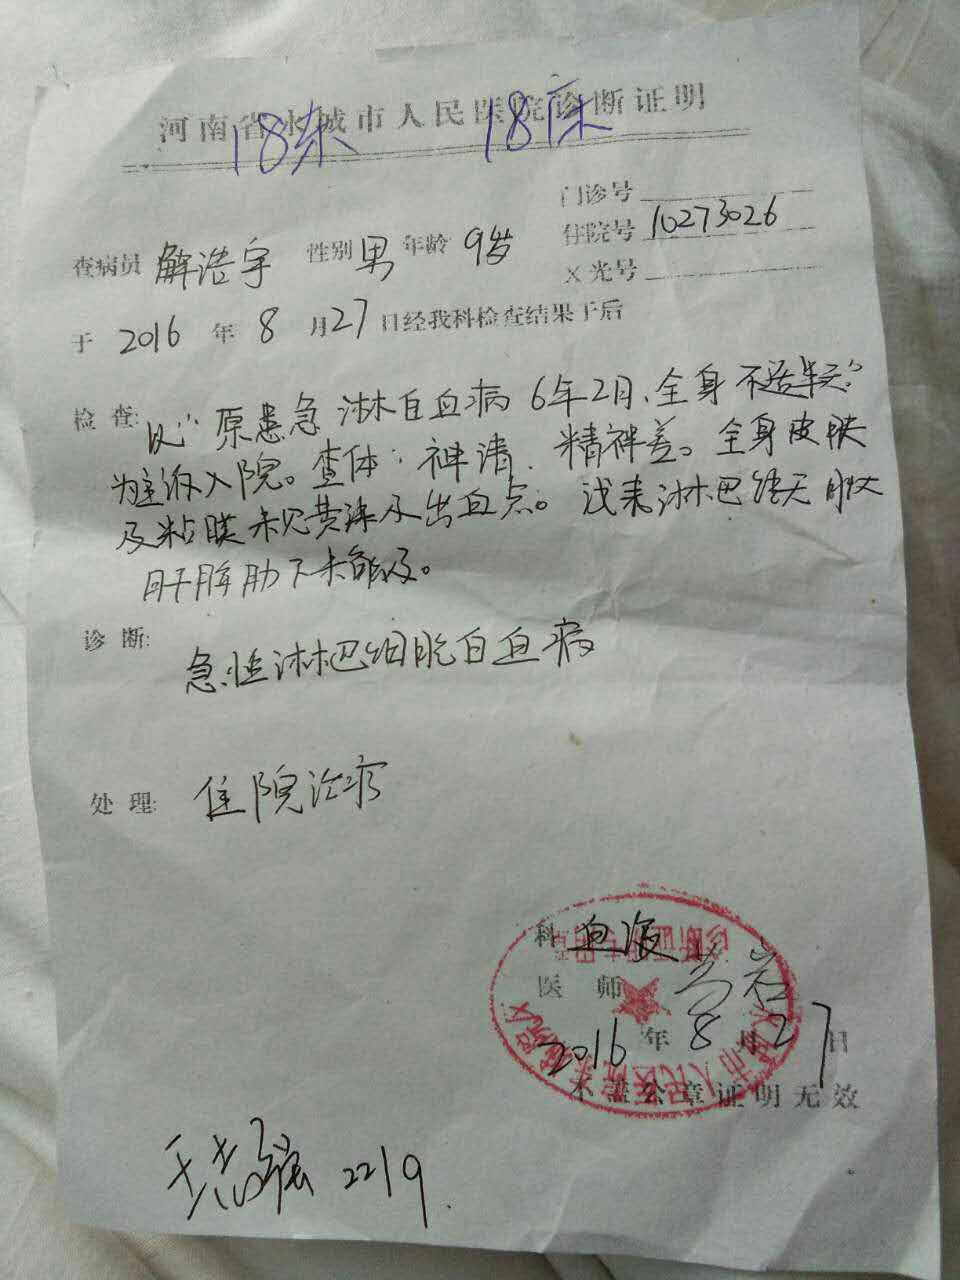 河南省永城市人民医院诊断证明
18床 18床
门诊号
住院号 10273026
X光号
查病员 解浩宇 性别 男 年龄 9岁
于 2016 年 8 月 27 日经我科检查结果于后
检查: 以"原患急淋白血病6年2月、全身不适半天"
为主诉入院。查体：神清、精神差。全身皮肤
及粘膜未见黄染及出血点。浅表淋巴结无肿大
肝脾肋下未触及。
诊断:
急性淋巴细胞白血病
处理: 住院治疗
科 血液
医师
2016 年 8 月 27 日
不盖公章证明无效
2219